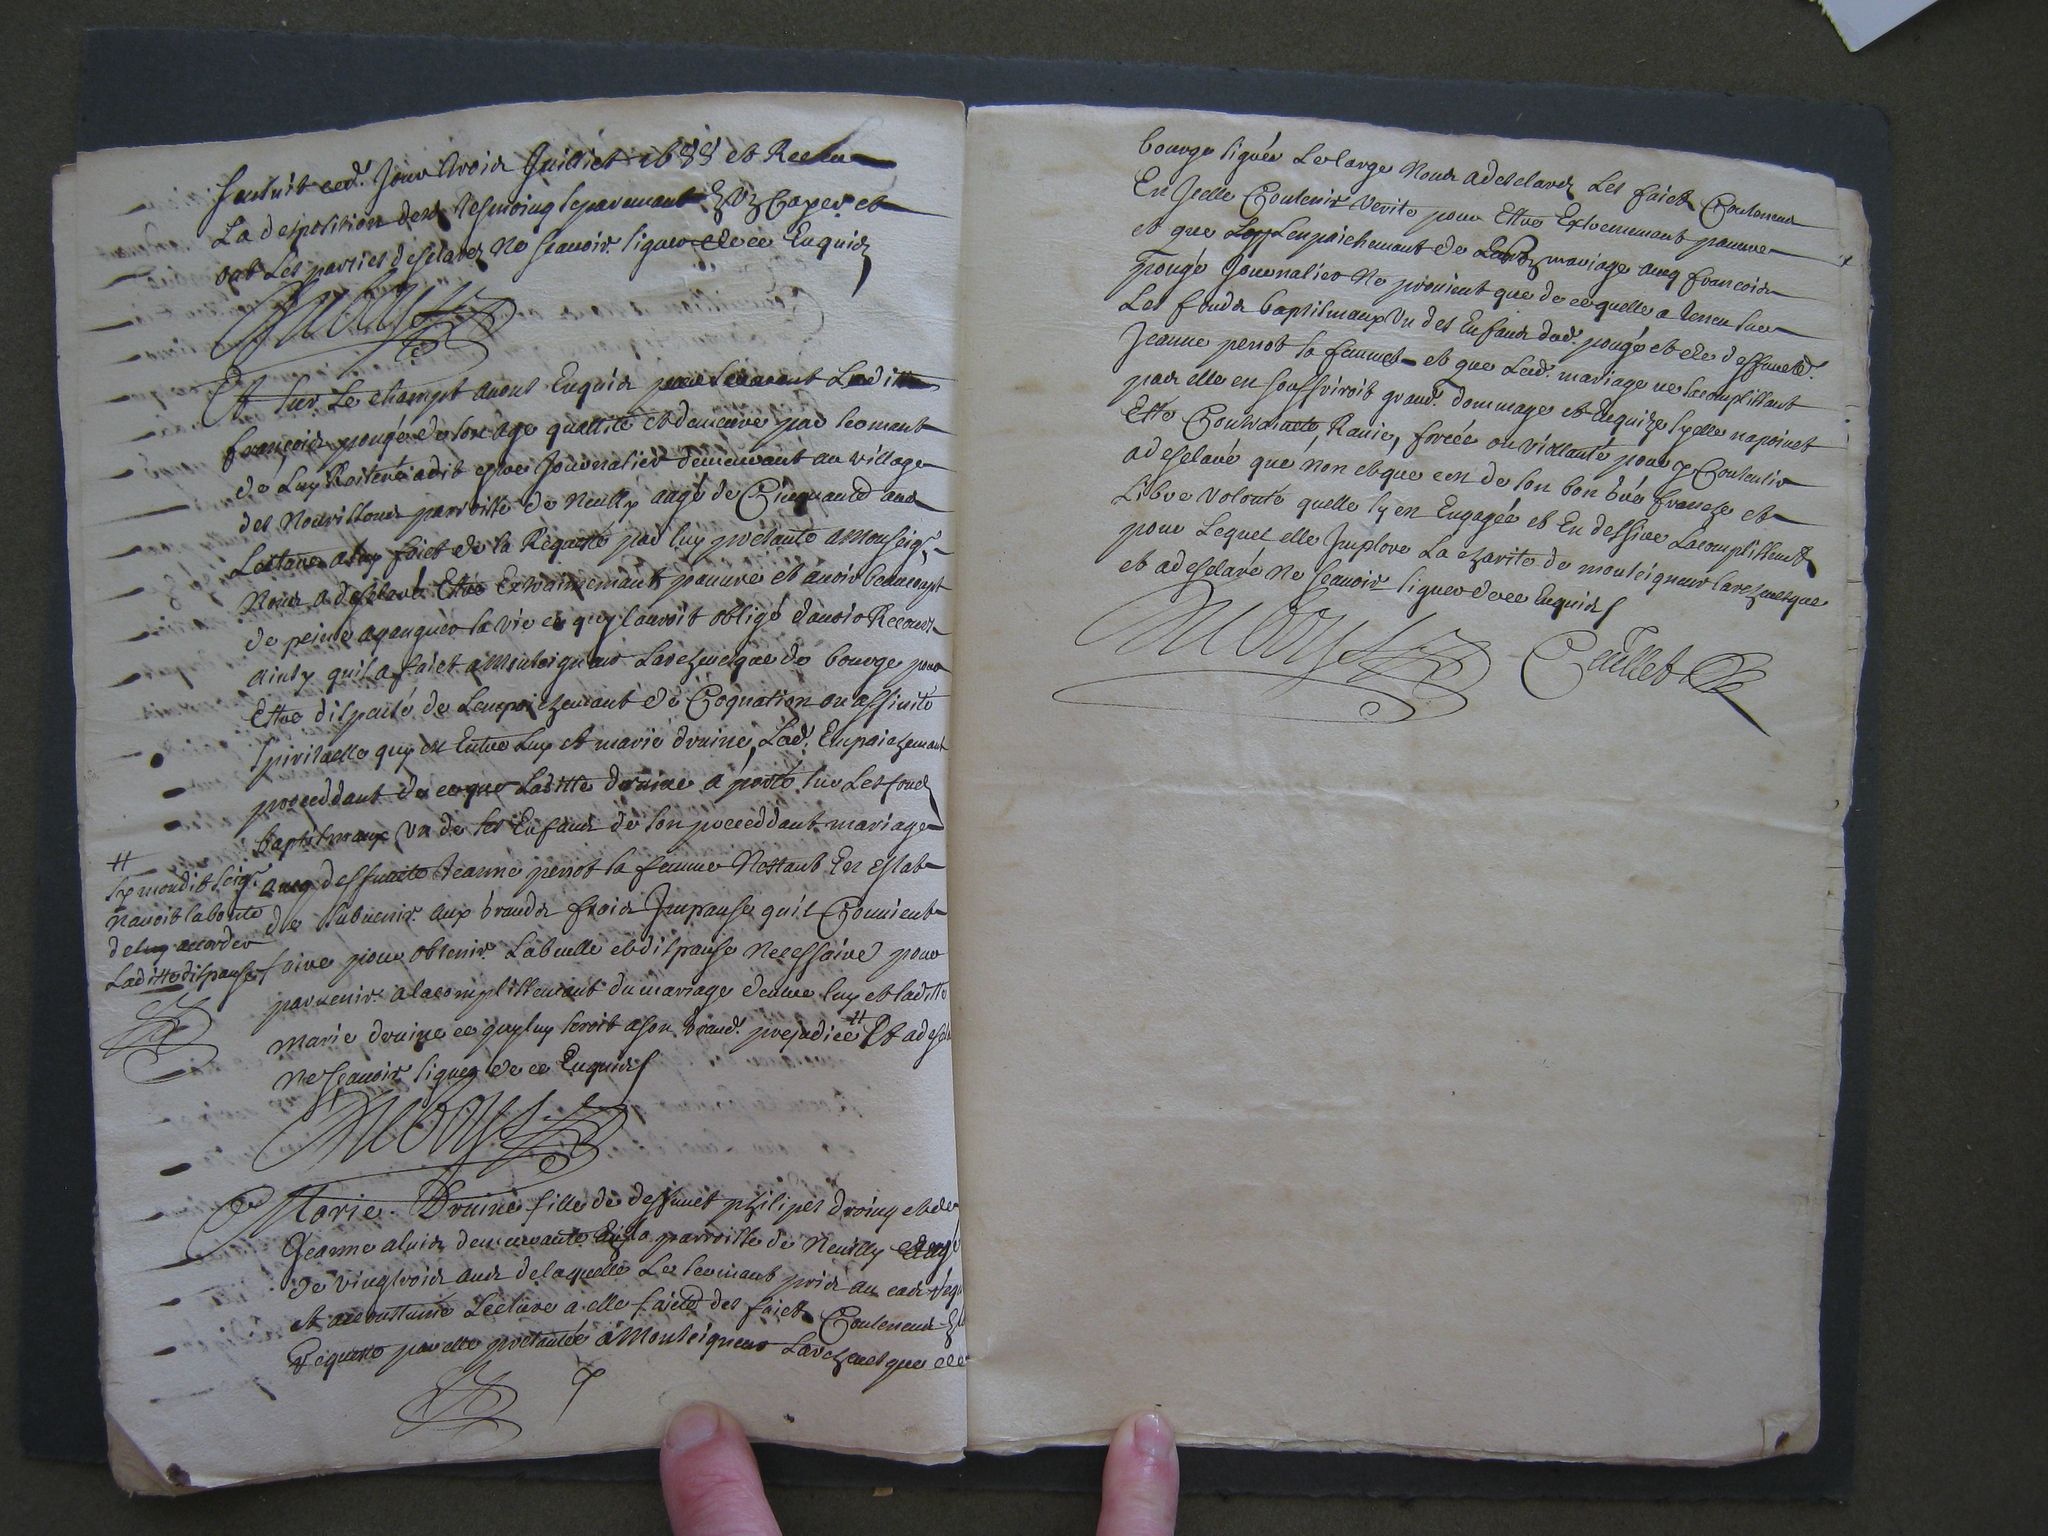 Sensuit ced. Jour trois Juilliet 1688 et Receu
La desposition des tesmoing separemant
ont Les parties desclarez Ne scauoir signer de ce Enquis
Et sur Le champt auons Enquis Laditte
françois pougé de son age quallité et demeure par sermant
de Luy Reiteré a dit estre Journalier demeurant au village
des Nourillons parroisse de Neully aagé de Cinquante ans
Lecture a luy faict de la Requeste par luy presante a Monseigr
Nous a desclaré Estre Extraimemant pauure et auoir beaucoupt
de peine a gangner sa vie ce quy lauroit obligé dauoir Recours
ainsy quil a faict a Monseigneur Larcheuesque de bourge pour
Estre dispansé de Lempaichemant de Cognation ou affinité
spirituelle quy est Entre Luy et marie druine, Led. Empaichemant
proceddant de ce que Laditte druine a porté sur Les fonds
baptismaux Un de ses Enfans de son preceddant mariage
aueq deffuncte Jeanne perrot sa femme Nestant En estat
de subuenir aux grands frois Impause quil Conuient
foire pour obtenir La bulle et dispanse Necessaire pour
paruenir a lacomplissemant du mariage dentre luy et laditte
marie druine ce quy luy seroit a son grand. prejudice # Et a desclaré
Ne scauoir signer de ce Enquis
#
sy mondit seigr
nauoit la bonté
de luy accorder
Laditte dispanse
Marie Druine fille de deffunct philipes droing et de
Jeanne aluis demeurante En la parroisse de Neuilly aagé
de vingtrois ans de laquelle Le sermant pris au cas requis
et accoustumé Lecture a elle faicte des faicts Conteneus
Requeste par elle presantée a Monseigneur Larcheuesque de
bourge signée Lelarge Nous a desclaré Les faicts Contenus
En Jcelle Contenir verité pour Estre Extremement pauure
et que Lempaichemant de mariage aueq francois
pougé Journalier Ne prouient que de ce quelle a tenu sur
Les fonds baptismaux Un des Enfans dud. pougé et de deffuncte
Jeanne perrot sa femme et que Led. mariage ne sacomplissant
pas elle en souffriroit grand. dommage et Enquize sy elle na point
Esté Contrainte, Rauie, forcée ou viollanté pour y Consentir
a desclaré que non et que cest de son bon gré franche et
Libre volonté quelle sy est Engagée et En dessire Lacomplissemt
pour Lequel elle Jmplore La charité de monseigneur larcheuesque
et a desclaré Ne scauoir signer de ce Enquis
Caillet